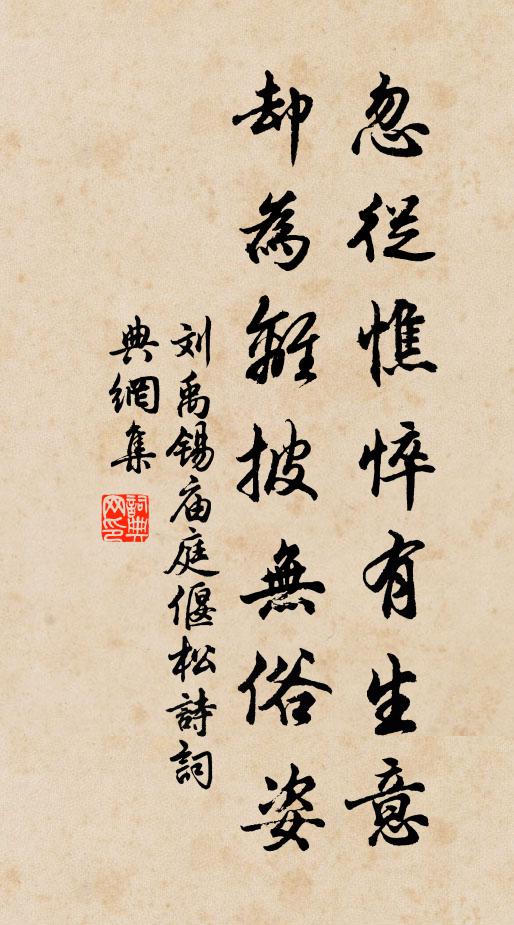 忽從憔悴有生意
却為離披無俗姿
刘禹锡庙庭偃松詩詞
典網集
詞典網印